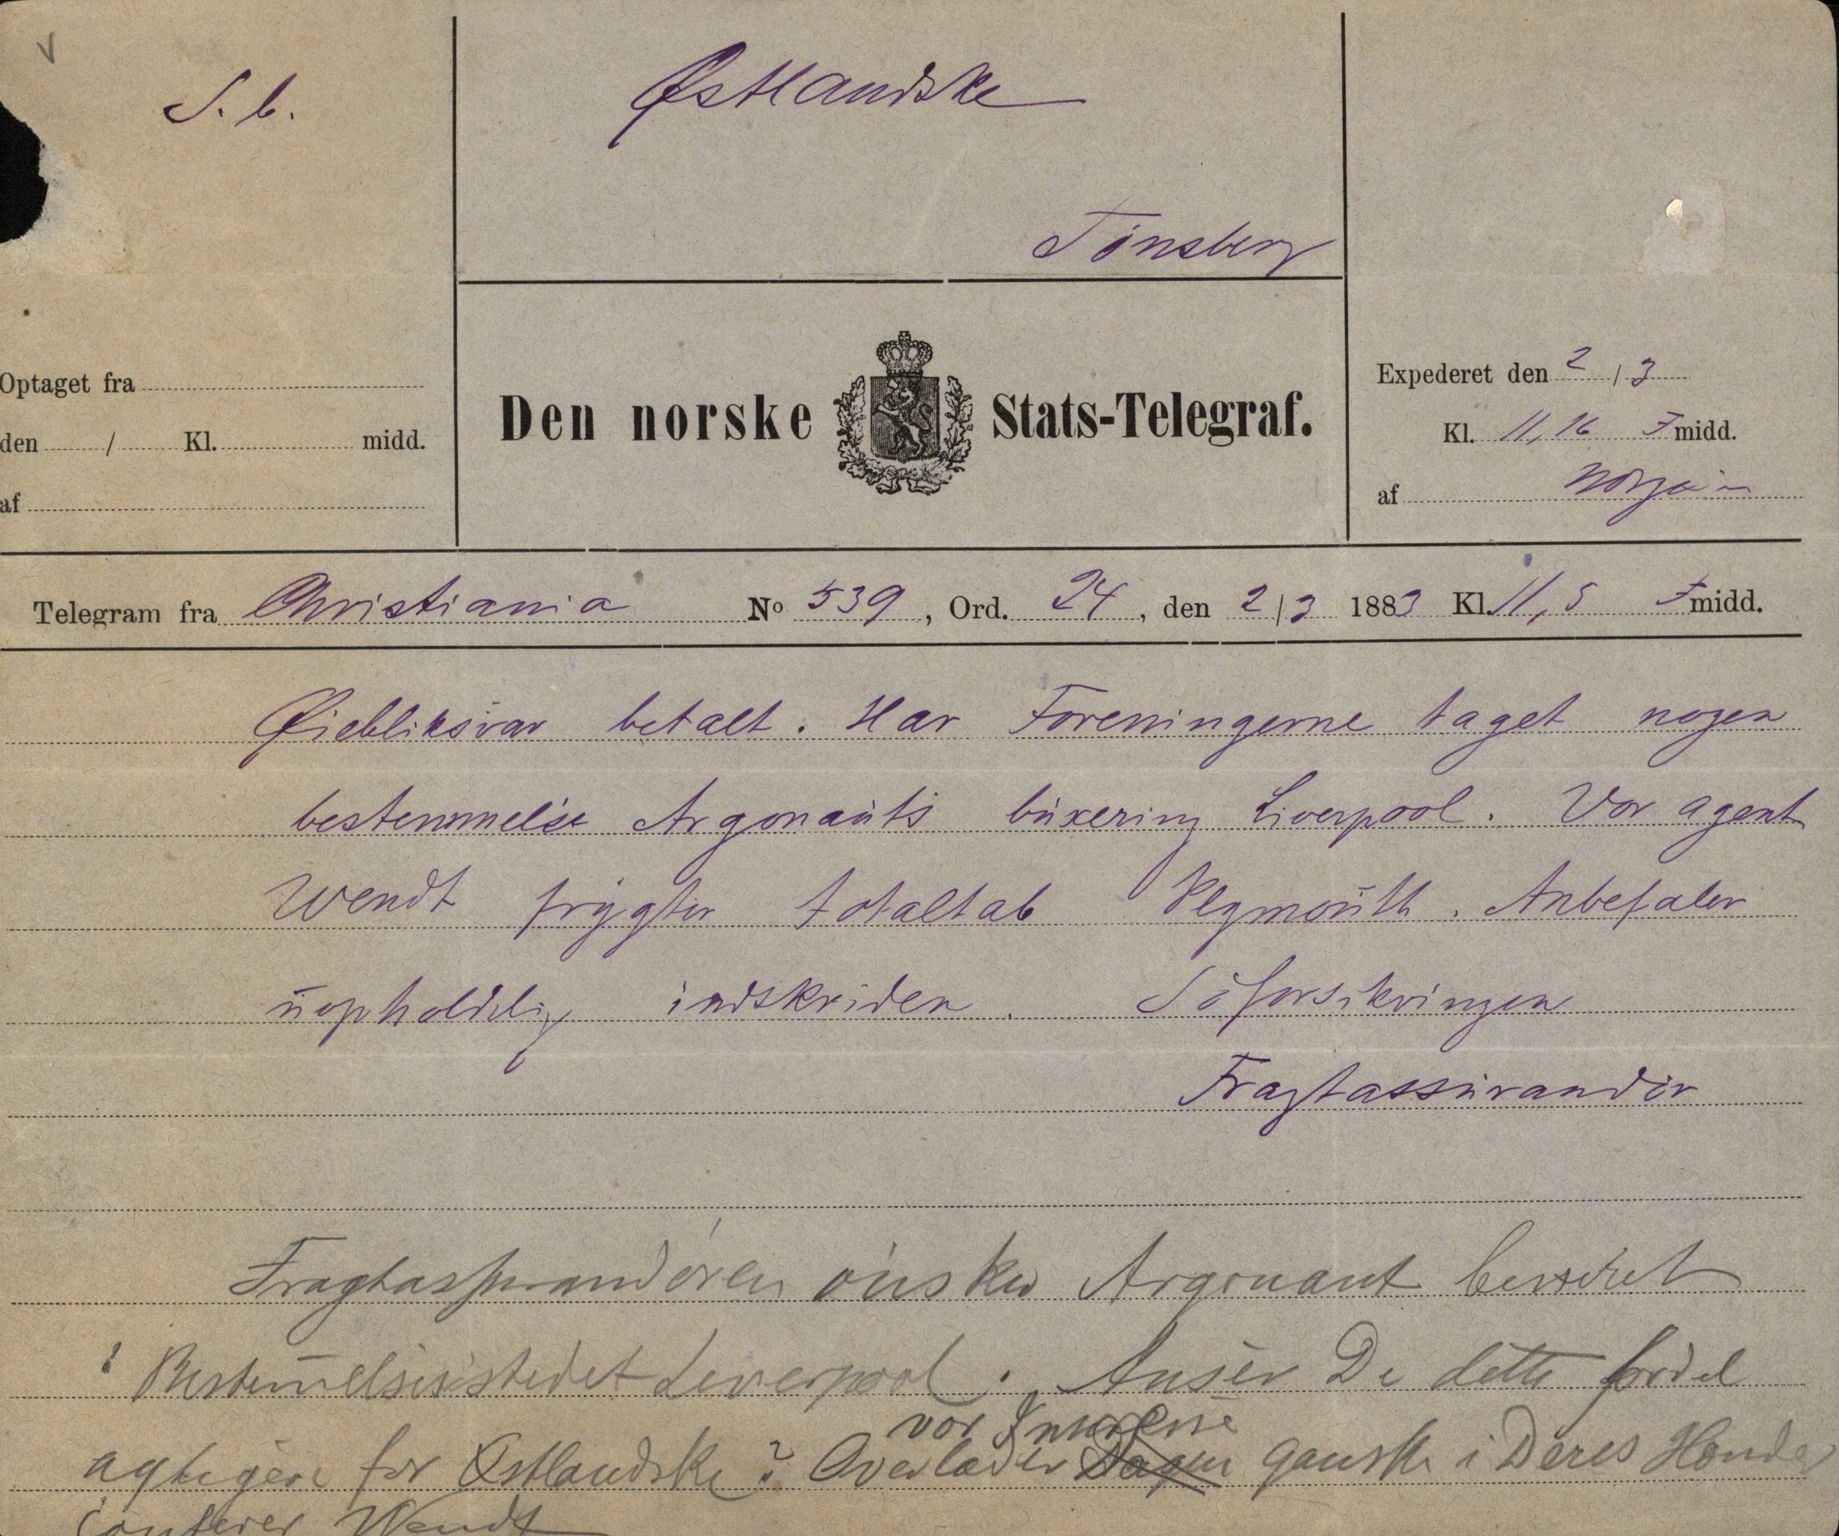 S. b.
Østlandske
Tönsberg
Optaget fra
den / Kl. midd.
af
Den norske Stats-Telegraf.
Expederet den 2 / 3
Kl. 11,16 F midd.
af
Telegram fra Christiania No 539, Ord. 24, den 2 / 3 1883 Kl. 11,5 F midd.
Øiebliksvar betalt. Har Foreningerne taget nogen
bestemmelse Argonauts buxering Liverpool. Vor agent
Wendt frygter totaltab Plymouth. Anbefaler
uopholdelig indskriden. Söforsikringen
Fragtassurandör
Fragtassurandören önsker Argonaut berettet
i Bestemelsesstedet Liverpool. Anser De dette fordel
vor Interesse
agtigere for Østlandske? Overlader Sagen ganske i Deres Hænder
conferer Wendt